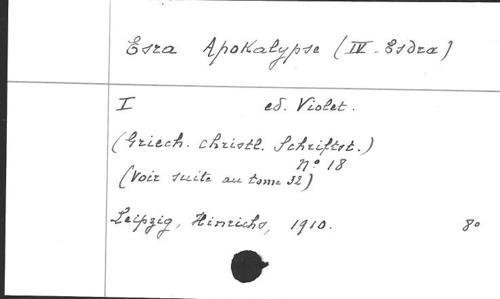 Esra Apokalypse (IV-Esdra)
I ed. Violet.
(Griech. christl. Schriftst.)
N° 18
(Voir suite au tome 32)
Leipzig, Hinrichs, 1910. 8°